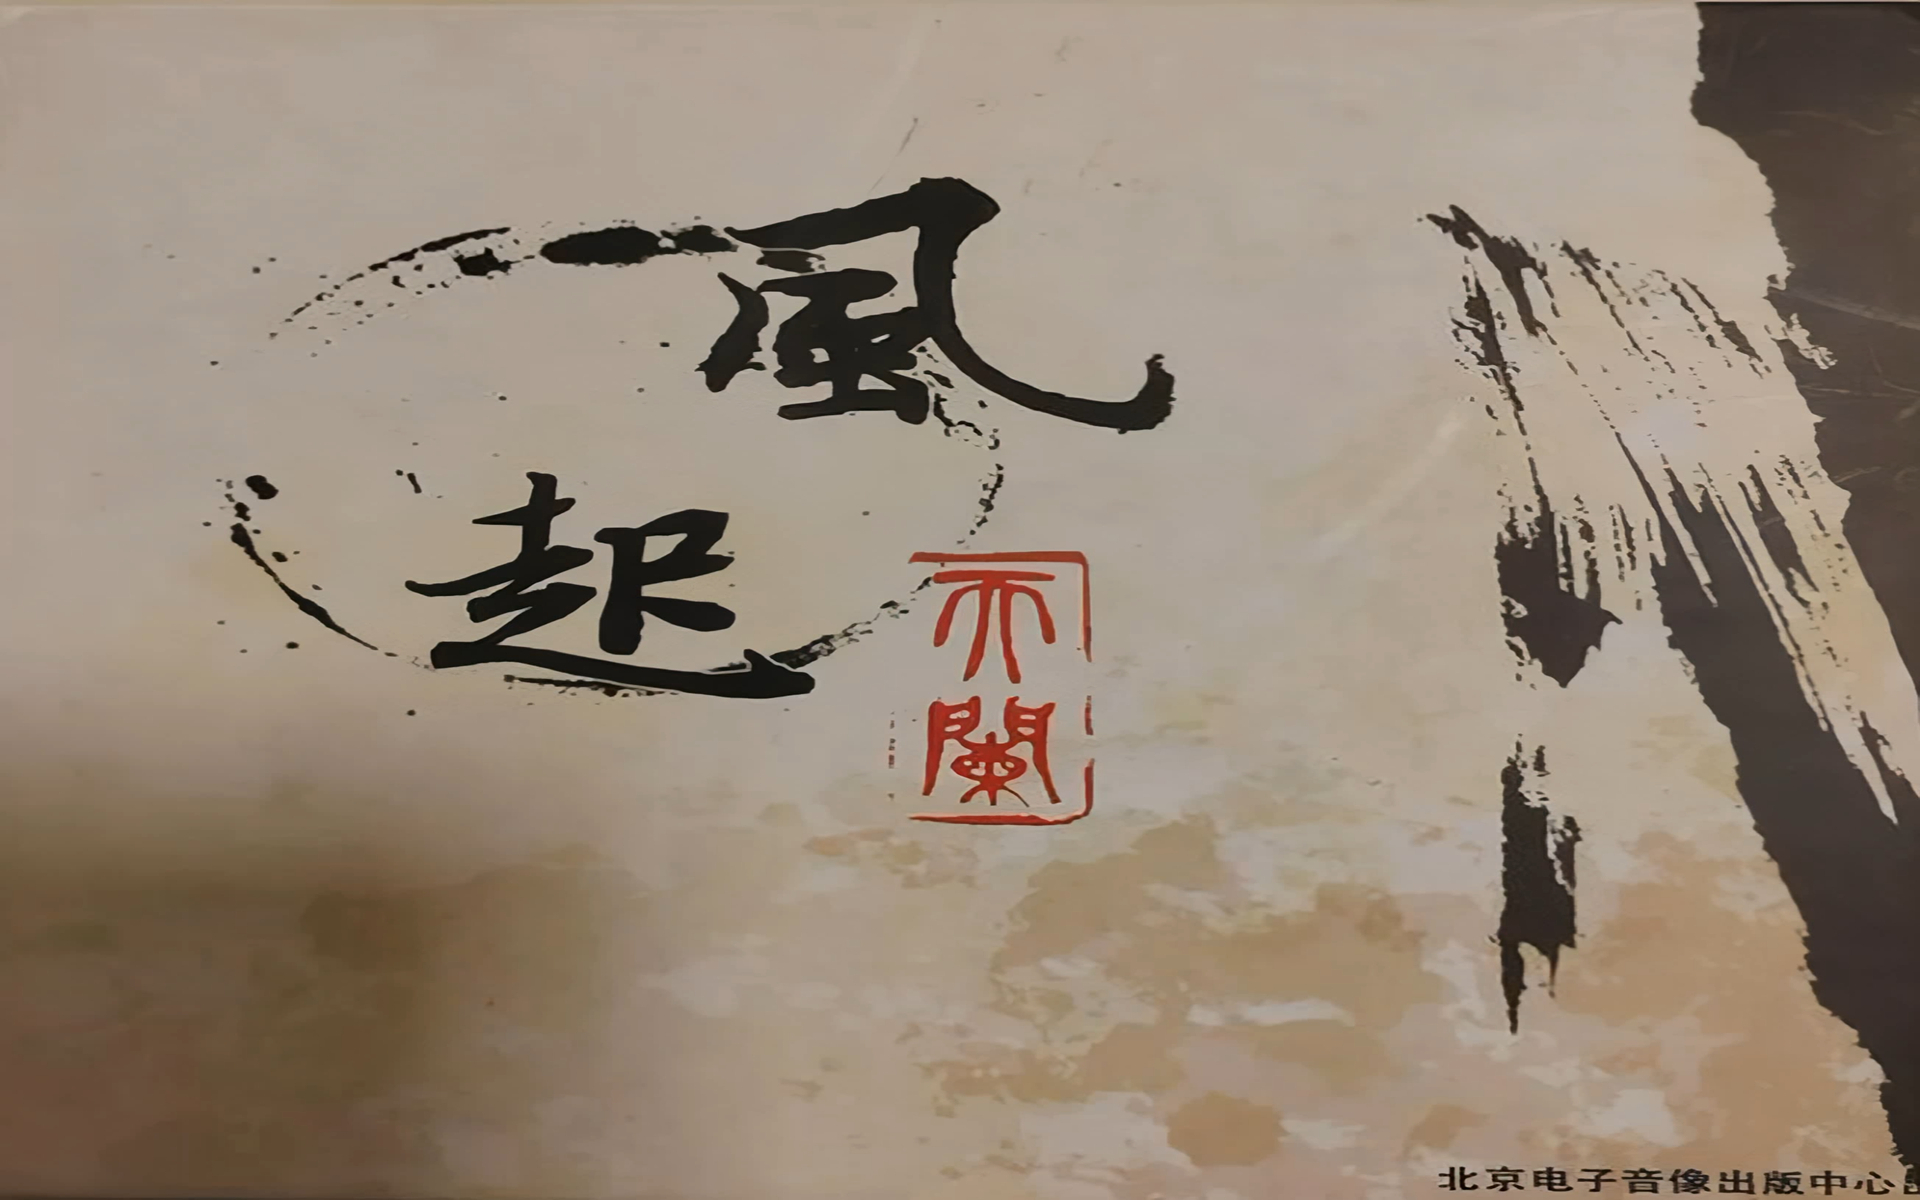 風
起
天闌
北京电子音像出版中心